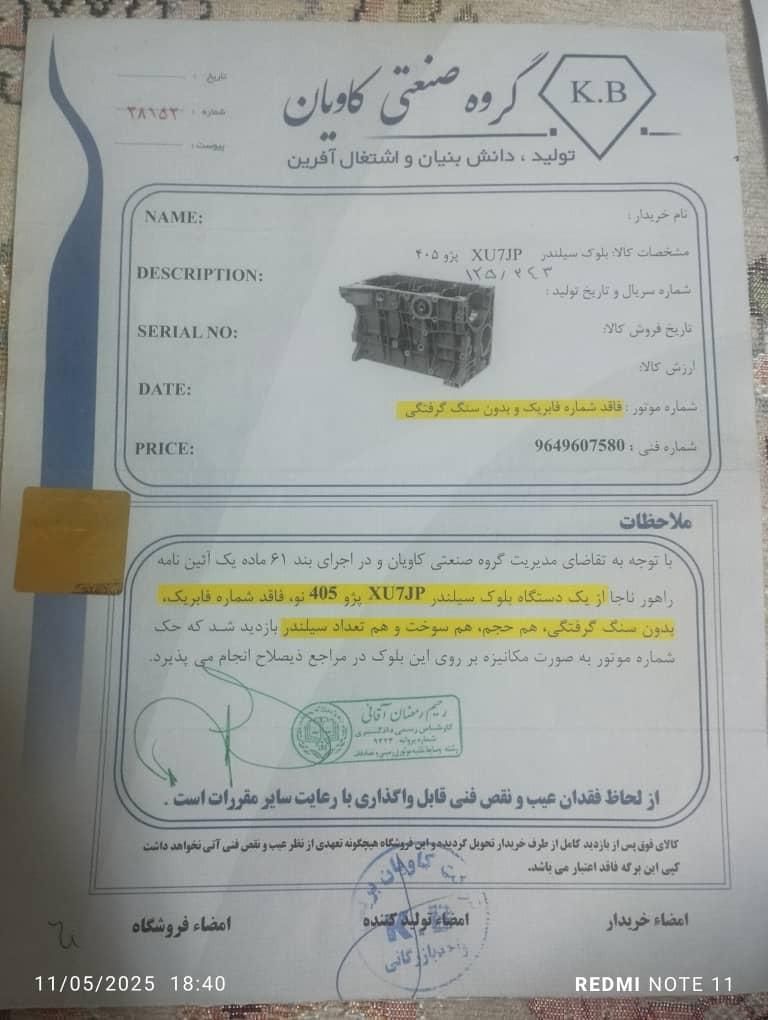 K.B
گروه صنعتی کاویان
تولید ، دانش بنیان و اشتغال آفرین
تاریخ :
شماره : ۳۸۱۵۲
پیوست :
NAME:
نام خریدار :
مشخصات کالا: بلوک سیلندر XU7JP پژو ۴۰۵
DESCRIPTION:
شماره سریال و تاریخ تولید :
SERIAL NO:
تاریخ فروش کالا:
ارزش کالا:
DATE:
شماره موتور : فاقد شماره فابریک و بدون سنگ گرفتگی
PRICE:
شماره فنی : 9649607580
ملاحظات
با توجه به تقاضای مدیریت گروه صنعتی کاویان و در اجرای بند ۶۱ ماده یک آئین نامه
راهور ناجا از یک دستگاه بلوک سیلندر XU7JP پژو 405 نو، فاقد شماره فابریک،
بدون سنگ گرفتگی، هم حجم، هم سوخت و هم تعداد سیلندر بازدید شد که حک
شماره موتور به صورت مکانیزه بر روی این بلوک در مراجع ذیصلاح انجام می پذیرد.
رحیم رمضان آقائی
کارشناس رسمی دادگستری
شماره پروانه
از لحاظ فقدان عیب و نقص فنی قابل واگذاری با رعایت سایر مقررات است .
کالای فوق پس از بازدید کامل از طرف خریدار تحویل گردیده و این فروشگاه هیچگونه تعهدی از نظر عیب و نقص فنی آتی نخواهد داشت
کپی این برگه فاقد اعتبار می باشد.
امضاء خریدار
امضاء تولید کننده
امضاء فروشگاه
11/05/2025 18:40
REDMI NOTE 11